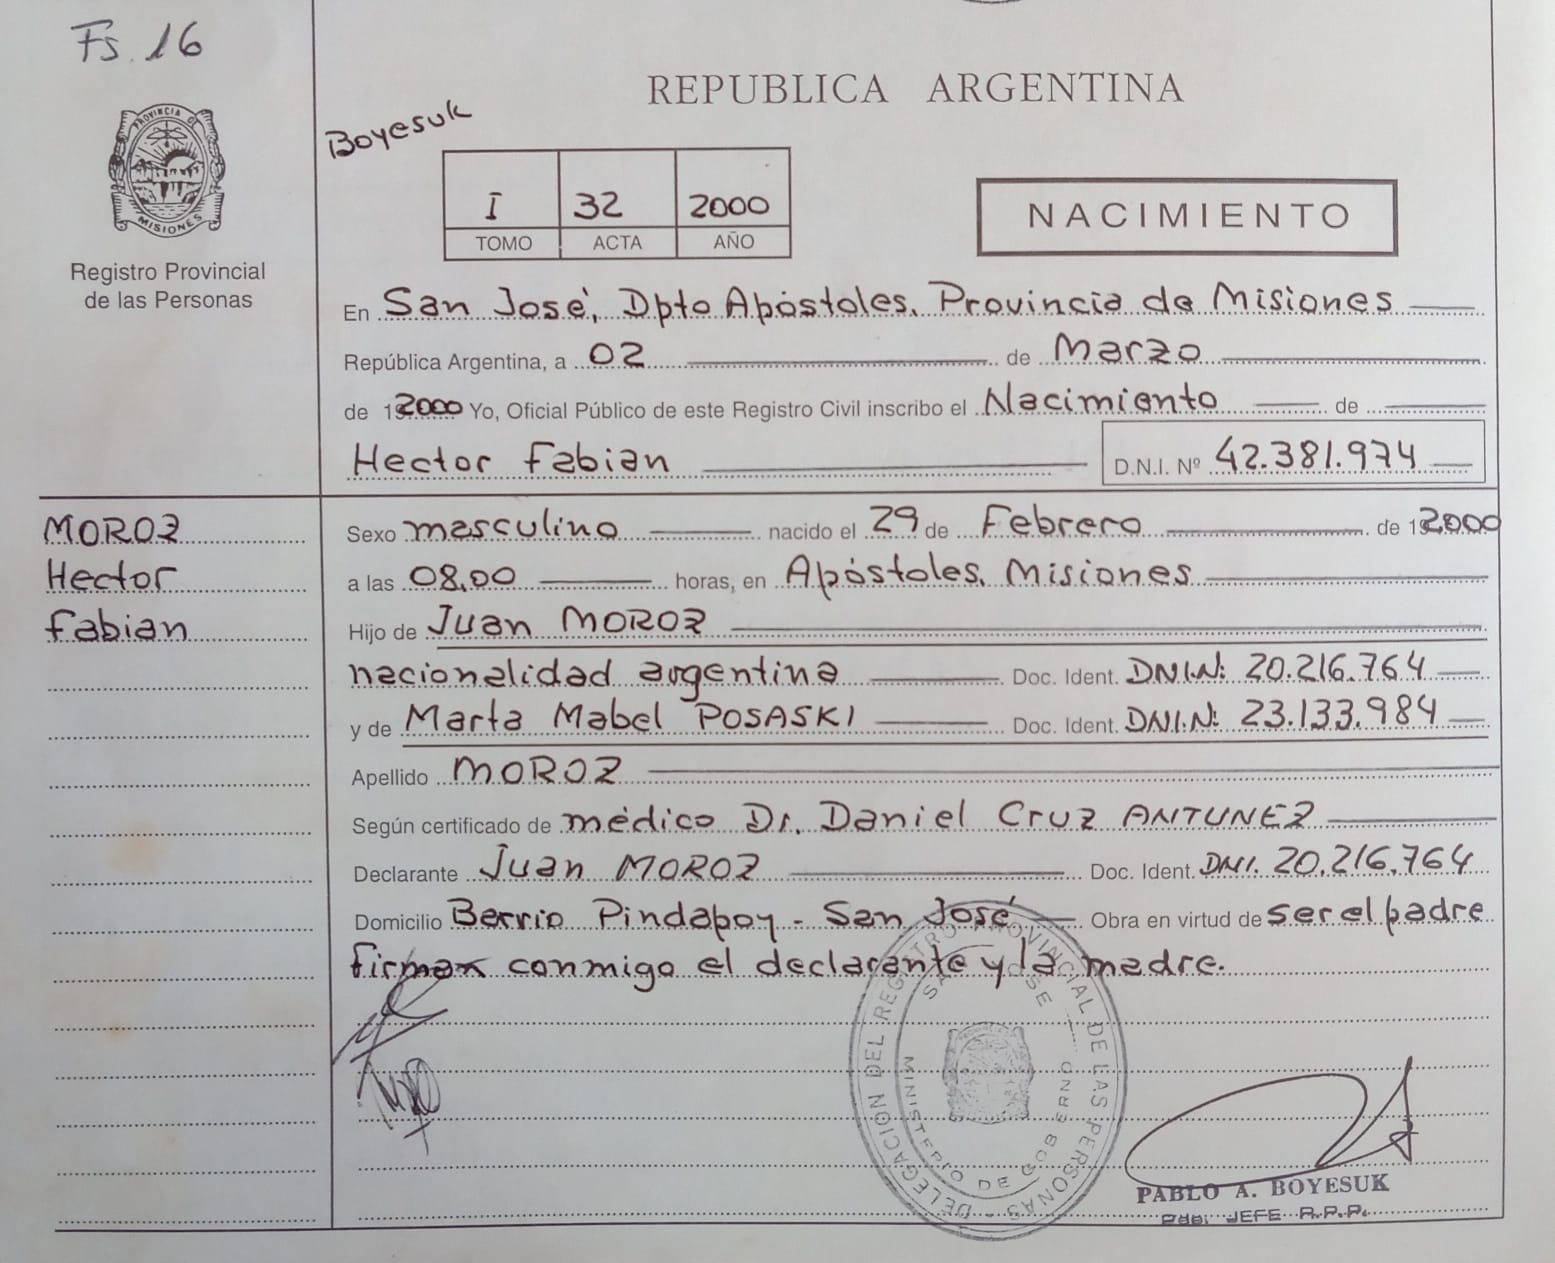 Fs. 16
PROVINCIA DE
MISIONES
Registro Provincial
de las Personas
REPUBLICA ARGENTINA
Boyesuk
I 32 2000
TOMO ACTA AÑO
NACIMIENTO
En San José, Dpto Apóstoles, Provincia de Misiones
República Argentina, a 02 de Marzo
de 2000 Yo, Oficial Público de este Registro Civil inscribo el Nacimiento de
Hector Fabian D.N.I. Nº 42.381.974
MOROZ
Hector
Fabian
Sexo masculino nacido el 29 de Febrero de 2000
a las 08,00 horas, en Apóstoles, Misiones
Hijo de Juan MOROZ
nacionalidad argentina Doc. Ident. DNI.N: 20.216.764
y de Marta Mabel POSASKI Doc. Ident. DNI.N: 23.133.984
Apellido MOROZ
Según certificado de médico Dr. Daniel Cruz ANTUNEZ
Declarante Juan MOROZ Doc. Ident. DNI. 20.216.764
Domicilio Barrio Pindapoy - San José Obra en virtud de ser el padre
firman conmigo el declarante y la madre.
DELEGACION DEL REGISTRO PROVINCIAL DE LAS PERSONAS
SAN JOSE
MINISTERIO DE GOBIERNO
PABLO A. BOYESUK
JEFE R.P.P.